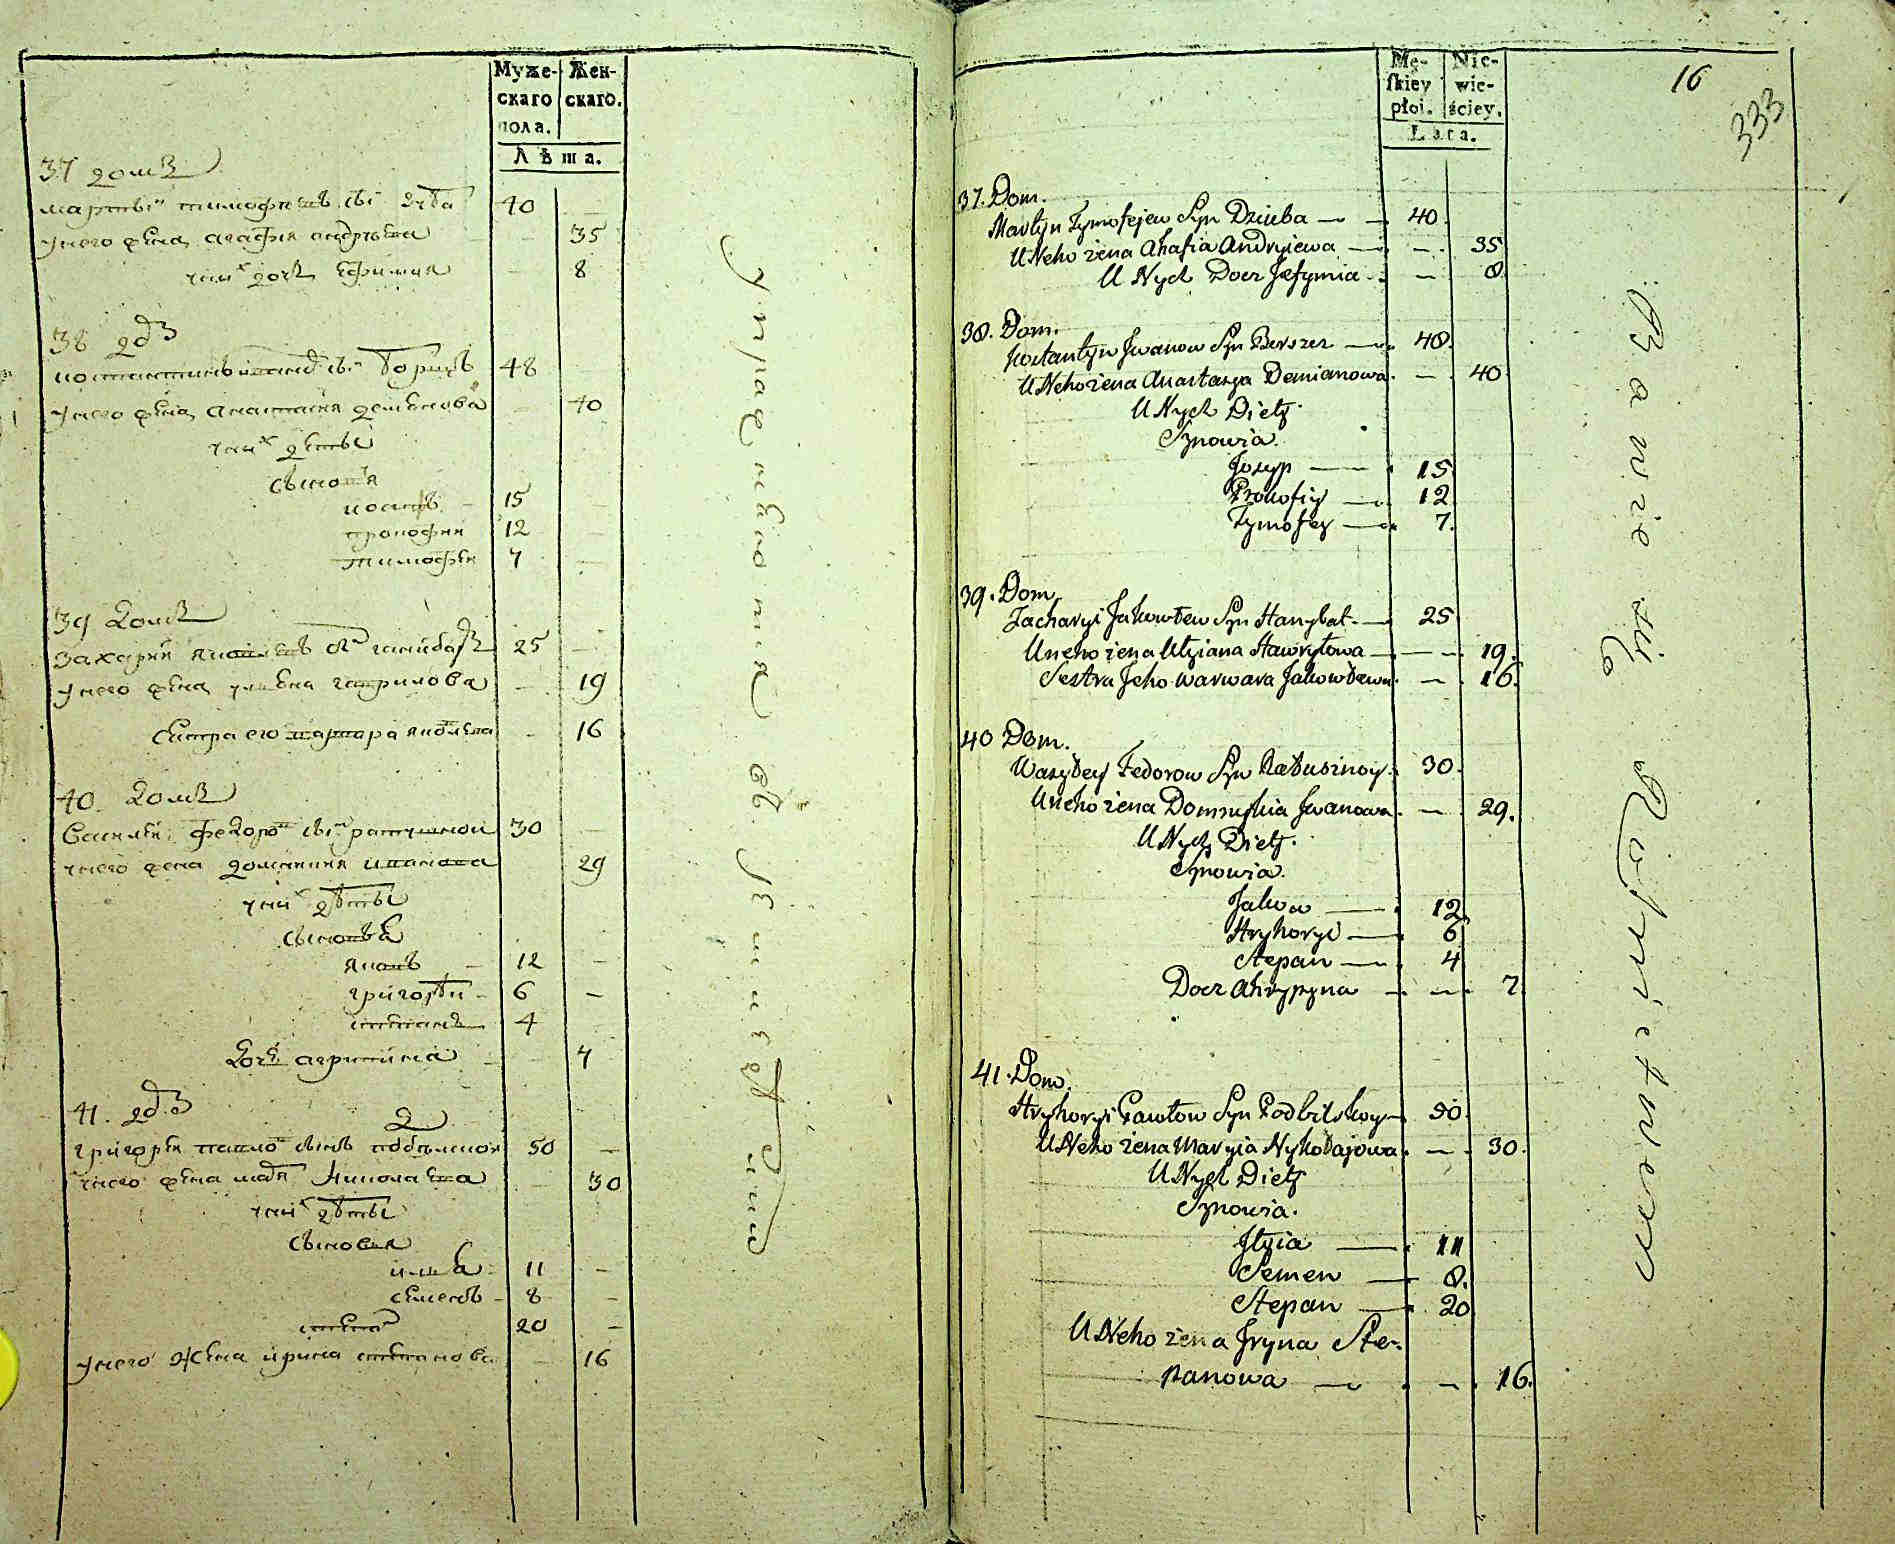 Муже-
скаго
пола.
Жен-
скаго.
Лѣта.
37 домъ
мартынъ тимофѣевъ сынъ дзюба 40 —
у него жена агафия андрѣева — 35
у них дочь ефимия — 8
38 домъ
костантинъ ивановъ сынъ 48
у него жена анастасия деменова — 40
у них дети
сыновя
иосипъ — 15 —
прокофии 12 —
тимофеи 7 —
39 домъ
захарии яковлевъ сынъ 25 —
у него жена улиена гаврилова — 19
сестра его варвара яковлева — 16
40. домъ
василеи федоровъ сынъ 30 —
у него жена домникия иванова 29
у них дѣти
сыновя
яковъ — 12 —
григорѣи — 6 —
степанъ 4
дочь агрипина — 7
41. домъ
григореи павловъ сынъ 50 —
у него жена мария николаева — 30
у них дѣти
сыновя
илья — 11 —
семенъ — 8 —
степанъ 20 —
у него жена ирина степанова — 16
упражняюция в земледѣлии
Mę-
skiey
płci.
Nie-
wie-
ściey.
Lata.
16
333
37. Dom.
Martyn Tymofejew Syn Dziuba — — 40.
U Neho żena Ahafia Andryiewa — — 35
U Nych Docz Jefymia — 8
38. Dom.
Kostantyn Iwanow Syn Berszer — 48.
U Neho żena Anastazya Demianowa — 40
U Nych Diety
Synowia.
Josyp — 15
Prokofiy — 12
Tymofey — 7.
39. Dom.
Zacharyi Jakowlew Syn Hanybal — 25
U neho żena Ulziana Hawryłowa — — 19.
Sestra Jeho warwara Jakowlewa — 16.
40 Dom.
Wasyley Fedorow Syn Ratusznoy. 30.
U neho żena Domnykia Iwanowa — 29.
U Nych Diety.
Synowia.
Jakow — 12
Hryhoryi — 6
Stepan — 4
Docz Ahrypyna — — 7.
41. Dom.
Hryhoryi Pawłow Syn Podbilskoy 50.
U Neho żena Maryia Nykołajowa — 30.
U Nych Diety
Synowia.
Jlyia — 11
Semen — 8.
Stepan — 20
U Neho żena Jryna Ste-
panowa — — 16.
Bawie się Rolnictwem